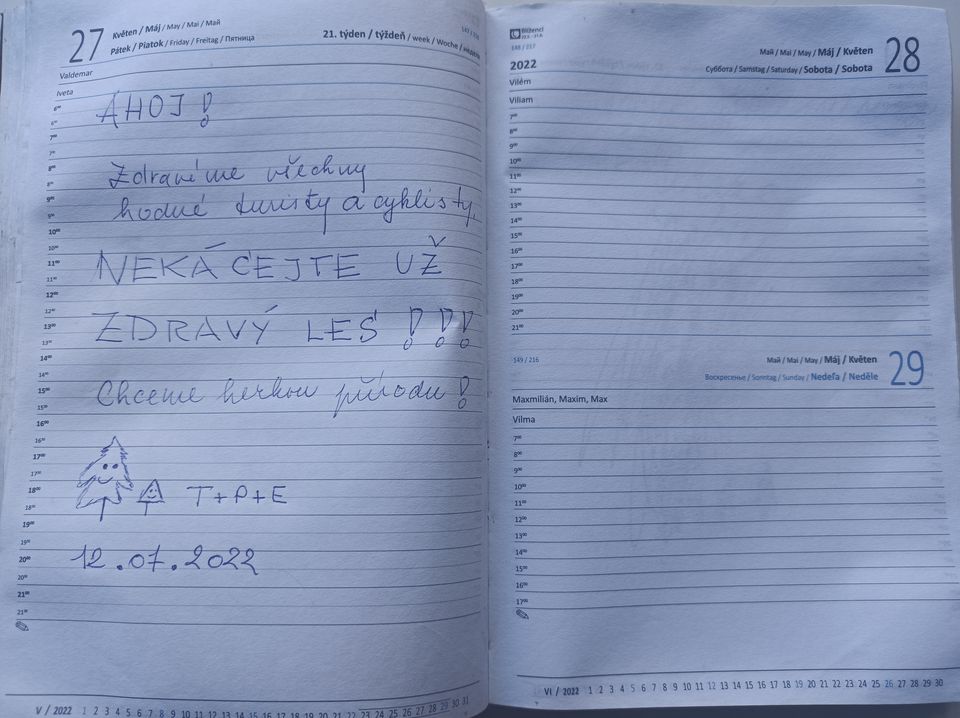 27
Květen / Máj / May / Mai / Май
Pátek / Piatok / Friday / Freitag / Пятница
21. týden / týždeň / week / Woche /
Valdemar
Iveta
6⁰⁰
AHOJ!
6³⁰
7⁰⁰
7³⁰
8⁰⁰
Zdravíme všechny
8³⁰
9⁰⁰
hodné turisty a cyklisty,
9³⁰
10⁰⁰
10³⁰
11⁰⁰
NEKÁCEJTE UŽ
11³⁰
12⁰⁰
12³⁰
13⁰⁰
ZDRAVÝ LES !!!
13³⁰
14⁰⁰
14³⁰
15⁰⁰
Chceme herkou přírodu!
15³⁰
16⁰⁰
16³⁰
17⁰⁰
17³⁰
18⁰⁰
T+P+E
18³⁰
19⁰⁰
19³⁰
20⁰⁰
12.07.2022
20³⁰
21⁰⁰
21³⁰
V / 2022 1 2 3 4 5 6 7 8 9 10 11 12 13 14 15 16 17 18 19 20 21 22 23 24 25 26 27 28 29 30 31
Blíženci
148 / 217
2022
Май / Mai / May / Máj / Květen
28
Суббота / Samstag / Saturday / Sobota / Sobota
Vilém
Viliam
7⁰⁰
8⁰⁰
9⁰⁰
10⁰⁰
11⁰⁰
12⁰⁰
13⁰⁰
14⁰⁰
15⁰⁰
16⁰⁰
17⁰⁰
18⁰⁰
19⁰⁰
20⁰⁰
21⁰⁰
149 / 216
Май / Mai / May / Máj / Květen
29
Воскресенье / Sonntag / Sunday / Nedeľa / Neděle
Maxmilián, Maxim, Max
Vilma
7⁰⁰
8⁰⁰
9⁰⁰
10⁰⁰
11⁰⁰
12⁰⁰
13⁰⁰
14⁰⁰
15⁰⁰
16⁰⁰
17⁰⁰
VI / 2022 1 2 3 4 5 6 7 8 9 10 11 12 13 14 15 16 17 18 19 20 21 22 23 24 25 26 27 28 29 30